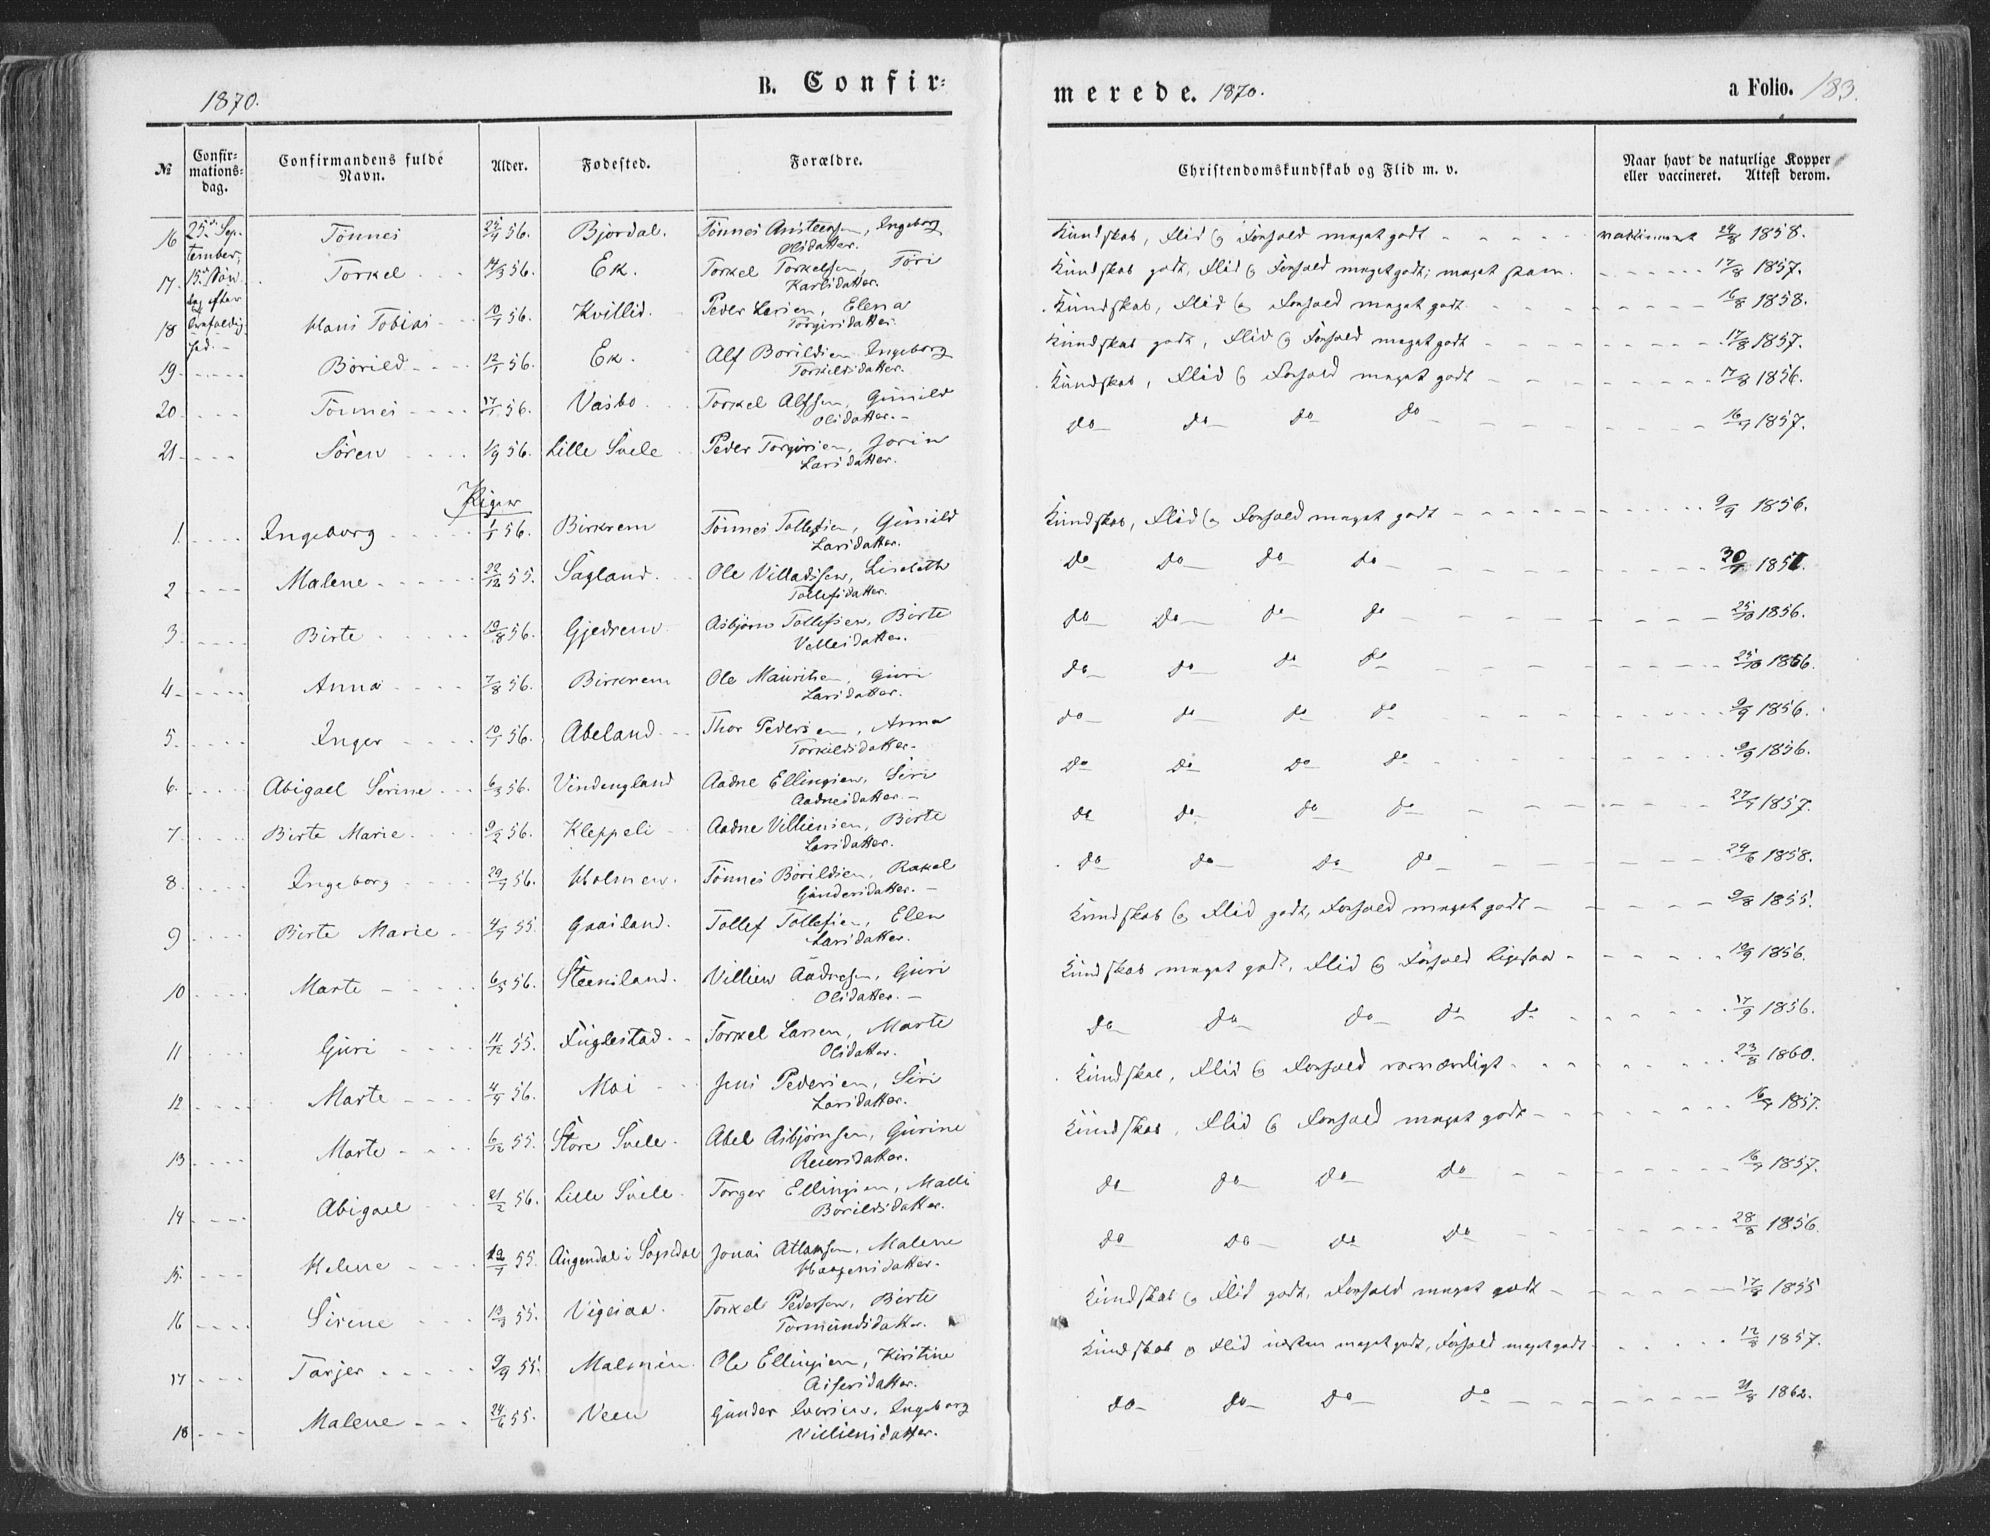 1870.
B. Confir-
merede. 1870.
a Folio. 183.
№ Confirmationsdag. Confirmandens fulde Navn. Alder. Fødested. Forældre. Christendomskundskab og Flid m. v. Naar havt de naturlige Kopper eller vaccineret. Attest derom.
16 25de September, 15de Søndag efter Trefoldighed. Tönnes 56. Bjordal. Tönnes Ansteensen, Ingeborg Olsdatter. Kundskab, Flid og Forhold meget godt 24/8 1858.
17. Torkel 14/3 56. Ek. Torkel Torkelsen, Töri Karlsdatter. Kundskab godt, Flid og Forhold meget godt; 17/8 1857.
18 Hans Tobias 10/1 56. Kvillid. Peder Larsen, Elena Torgersdatter. Kundskab, Flid og Forhold meget godt 16/8 1858.
19 Börild 12/1 56. Ek. Alf Börildsen Ingeborg Torkildsdatter. Kundskab godt, Flid og Forhold meget godt 17/8 1857.
20 Tönnes 17/1 56. Vasbo Torkel Alfsen, Gunild Olsdatter. Kundskab, Flid og Forhold meget godt 17/8 1856.
21 Sören 1/9 56. Lille Svele Peder Torgersen, Jorin Larsdatter. do do do do 1857.
Piger
1 Ingeborg 1/1 56. Birkrem Tönnes Tollefsen, Gunild Larsdatter. Kundskab, Flid og Forhold meget godt 9/9 1856.
2 Malene 22/12 55. Sagland. Ole Villadsen, Lisebeth Tollefsdatter. do do do do
3. Birte 19/8 56. Gjedrem Asbjörn Tollefsen, Birte Datter. do do do do 25/10 1856.
4 Anna 7/8 56. Birkrem Ole Mauritsen, Guri Larsdatter. do do do do 25/10 1856.
5. Inger 10/1 56. Abeland Thor Pedersen, Anna Torkildsdatter. do do do do 9/9 1856.
6. Abigael Serine 6/3 56. Vindengland Aadne Ellingsen, Siri Aadnesdatter. do do do do 9/9 1856.
7. Birte Marie 9/2 56. Kleppeli Aadne Villiensen, Birte Larsdatter. do do do do 1857.
8. Ingeborg 56. Holmen. Tönnes Börildsen, Rakel Gundersdatter. do do do do 24/6 1858.
9 Birte Marie 55. Gaasland. Tollef Tollefsen, Elen Larsdatter. Kundskab og Flid godt, Forhold meget godt 9/8 1855.
10 Marte 6/5 56. Steensland. Villien Aadnesen, Guri Olsdatter. Kundskab meget godt, Flid og Forhold ligesaa 10/9 1856.
11 Guri 11/12 55. Fuglestad Torkel Larsen, Marte Olsdatter. do do do do do 17/9 1856.
12 Marte 56. Moi Jens Pedersen, Siri Larsdatter. Kundskab, Flid og Forhold roesværdigt 23/8 1860.
13 Marte 6/12 55. Store Svele. Abel Asbjörnsen, Gurine Reiersdatter. Kundskab, Flid og Forhold meget godt 1857.
14 Abigael 21/2 56. Lille Svele Torger Ellingsen, Malli Börildsdatter. do do do do 1857.
15. Helene 55. Augendal i Sogndal Jonas Atlaksen, Malene Haagensdatter. do do do do 28/8 1856.
16 Sirene 13/3 55. Vigesaa. Torkel Pedersen, Birte Tormundsdatter. Kundskab og Flid godt, Forhold meget godt 1855
17 Tarjer 9/9 55. Malmein Ole Ellingsen, Kirstine Asfersdatter. Kundskab og Flid næsten meget godt, Forhold meget godt 12/8 1857.
18 Malene 24/6 55. Veen Gunder Iversen, Ingeborg Villiensdatter. do do do do 21/8 1862.